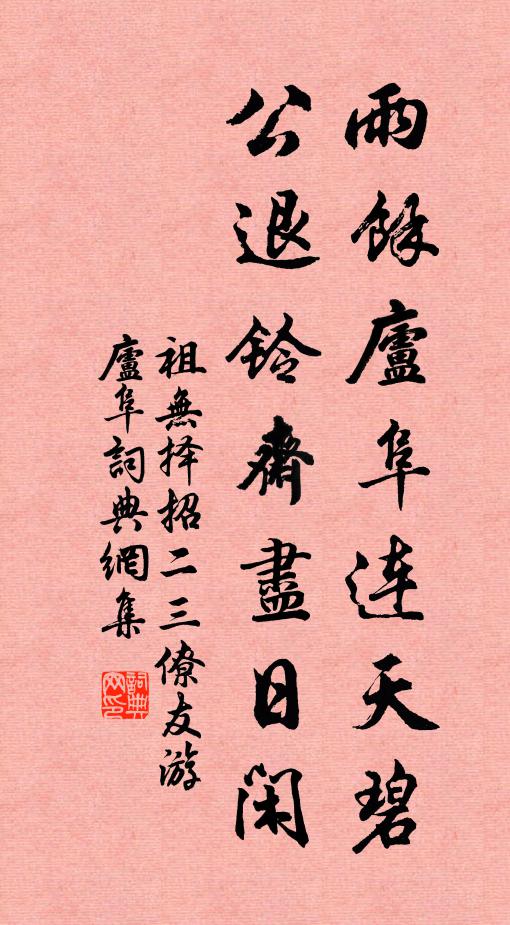 雨餘廬阜连天碧
公退铃齋盡日闲
祖無择招二三僚友游
廬阜詞典網集
詞典網印